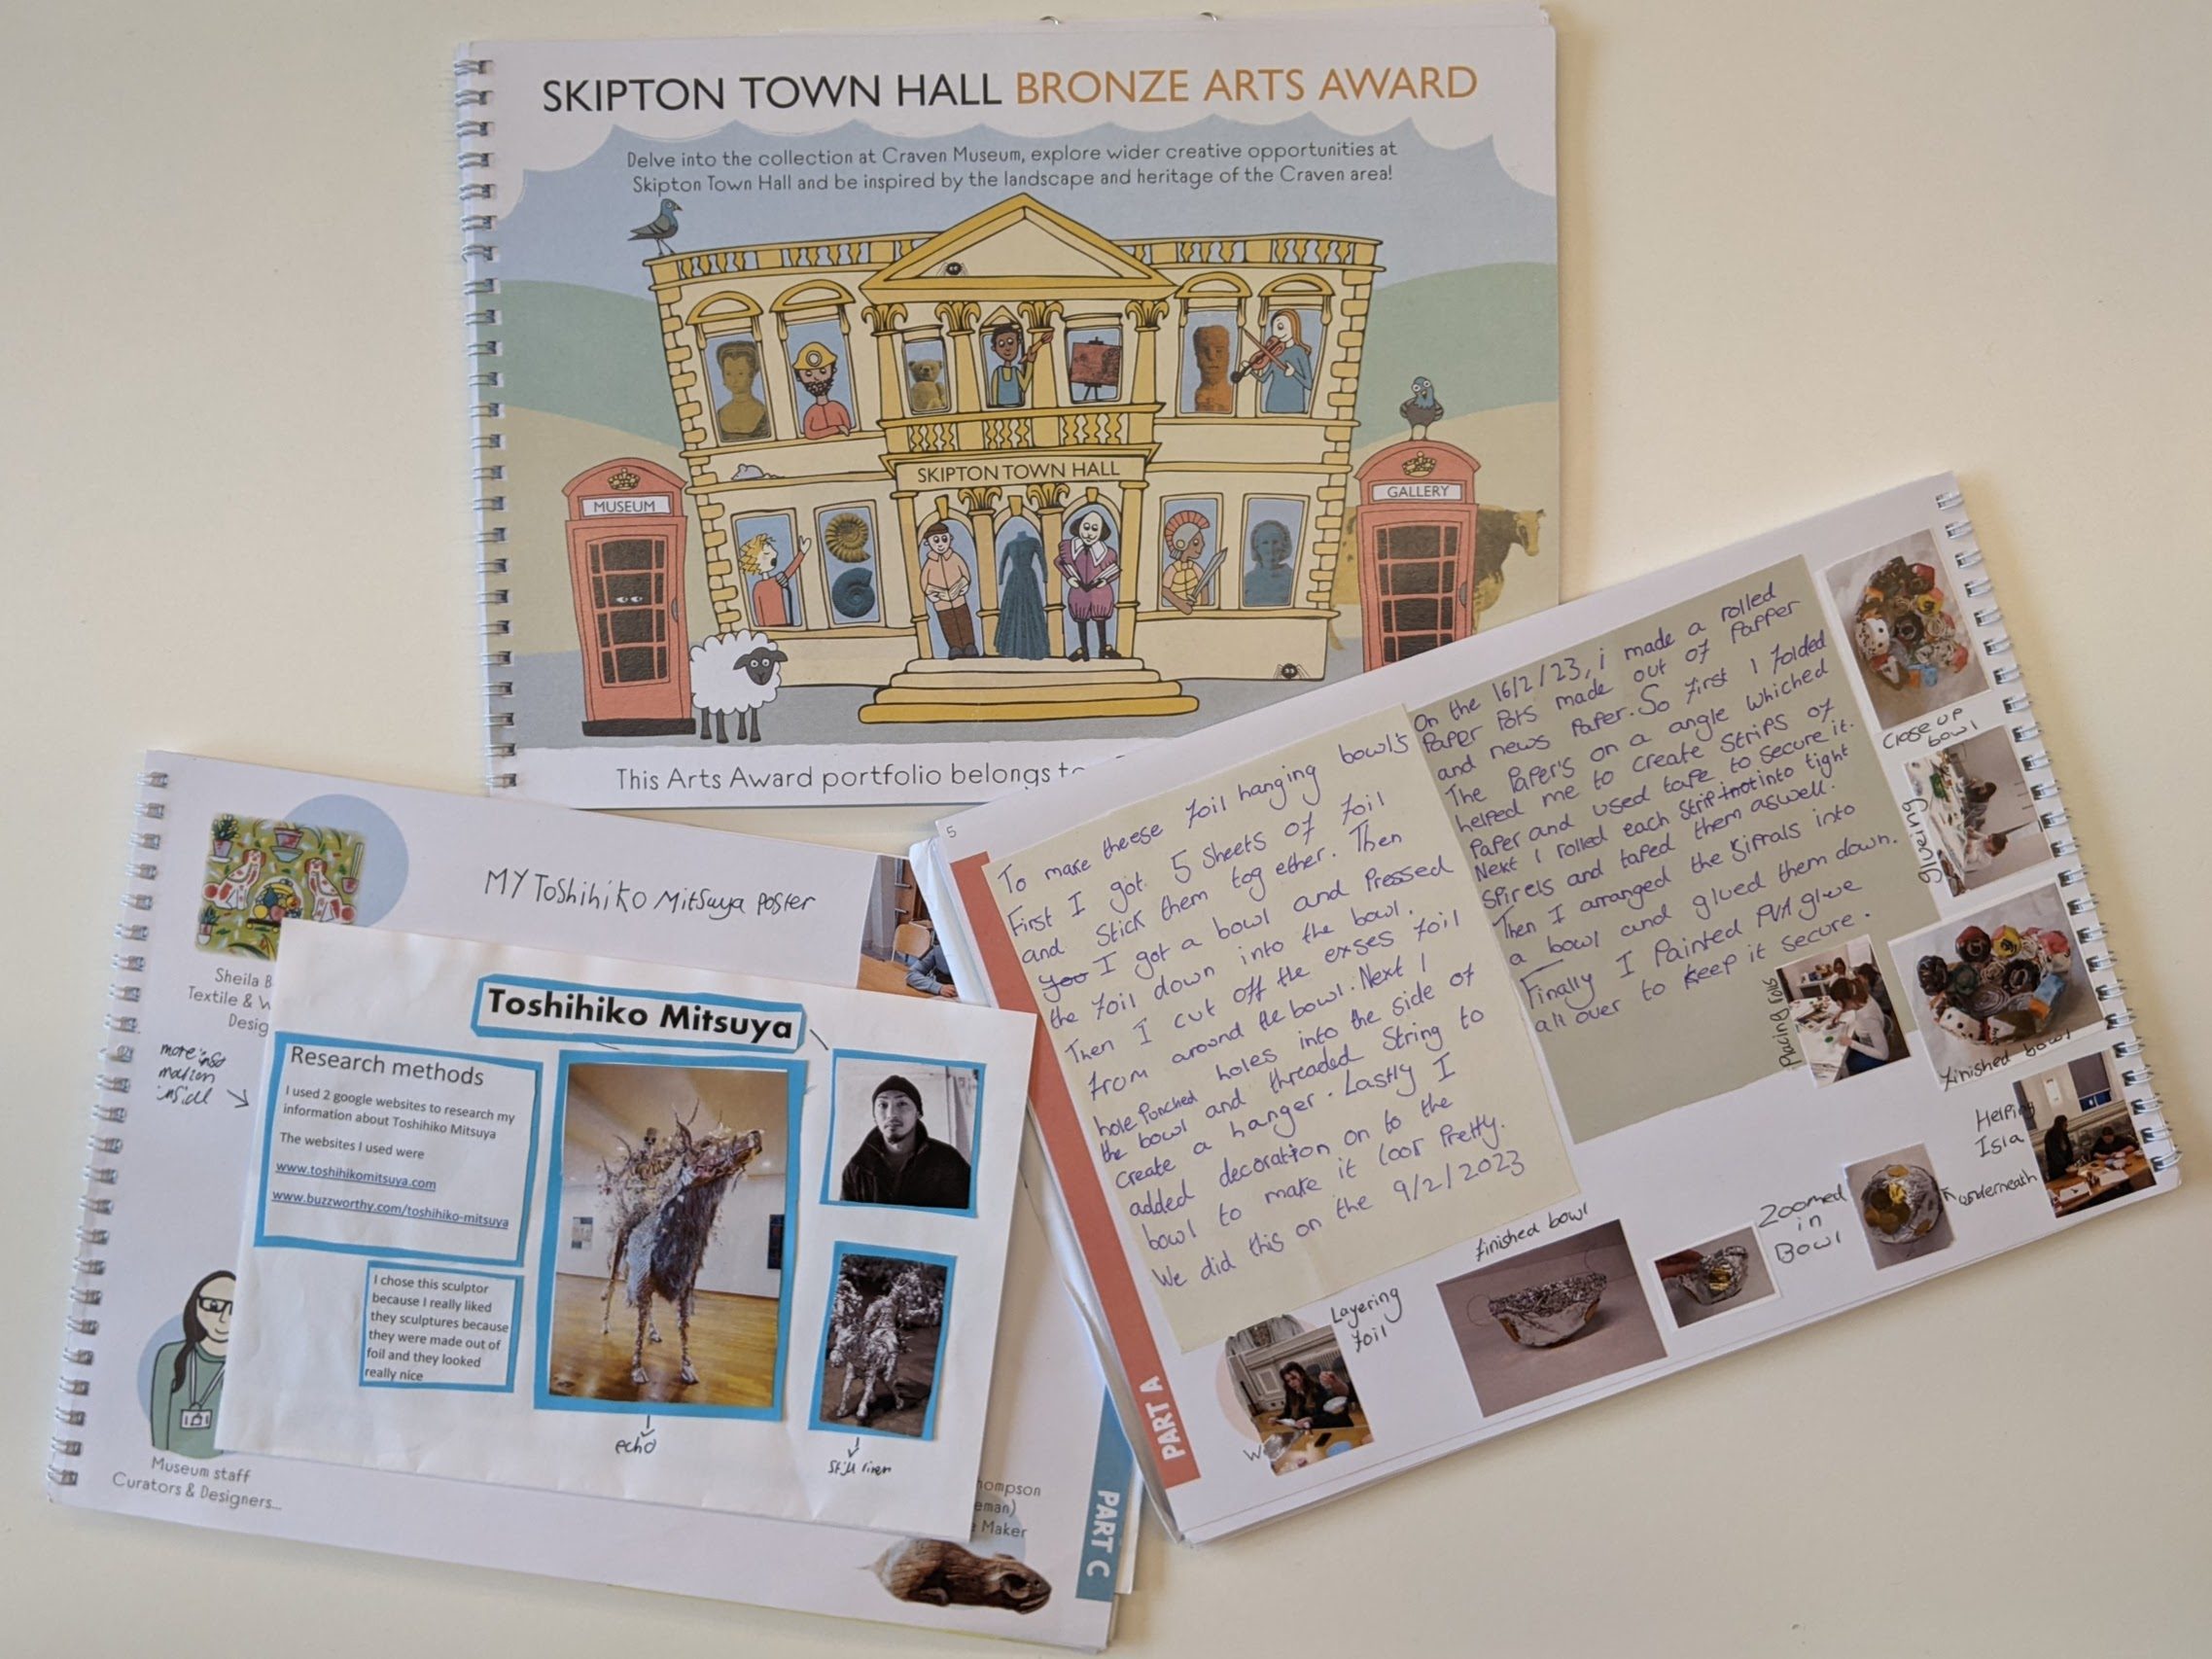 SKIPTON TOWN HALL BRONZE ARTS AWARD
Delve into the collection at Craven Museum, explore wider creative opportunities at
Skipton Town Hall and be inspired by the landscape and heritage of the Craven area!
SKIPTON TOWN HALL
MUSEUM
GALLERY
This Arts Award portfolio belongs
MY Toshihiko Mitsuya Poster
Sheila B
Textile & W
Desig
more info
mation
inside
Toshihiko Mitsuya
Research methods
I used 2 google websites to research my
information about Toshihiko Mitsuya
The websites I used were
www.toshihikomitsuya.com
www.buzzworthy.com/toshihiko-mitsuya
I chose this sculptor
because I really liked
they sculptures because
they were made out of
foil and they looked
really nice
echo
Still
Museum staff
Curators & Designers...
hompson
eman)
Maker
PART C
5
To make theese foil hanging bowl's
First I got 5 sheets of foil
and stick them together. Then
I got a bowl and Pressed
the foil down into the bowl.
Then I cut off the exses foil
from around the bowl. Next I
hole Punched holes into the side of
the bowl and threaded String to
create a hanger. Lastly I
added decoration on to the
bowl to make it look Pretty.
We did this on the 9/2/2023
On the 16/2/23, i made a rolled
Paper Pots made out of Papper
and news Paper. So first I folded
The Paper's on a angle whiched
helped me to create strips of
Paper and used tape to secure it.
Next I rolled each strip into tight
Spirels and taped them aswell.
Then I arranged the Sifrals into
a bowl and glued them down.
Finally I Painted PVA glue
all over to keep it secure.
close up
bowl
glueing
Placing rolls
finished bowl
Helping
Isla
underneath
Zoomed
in
Bowl
finished bowl
Layering
foil
PART A